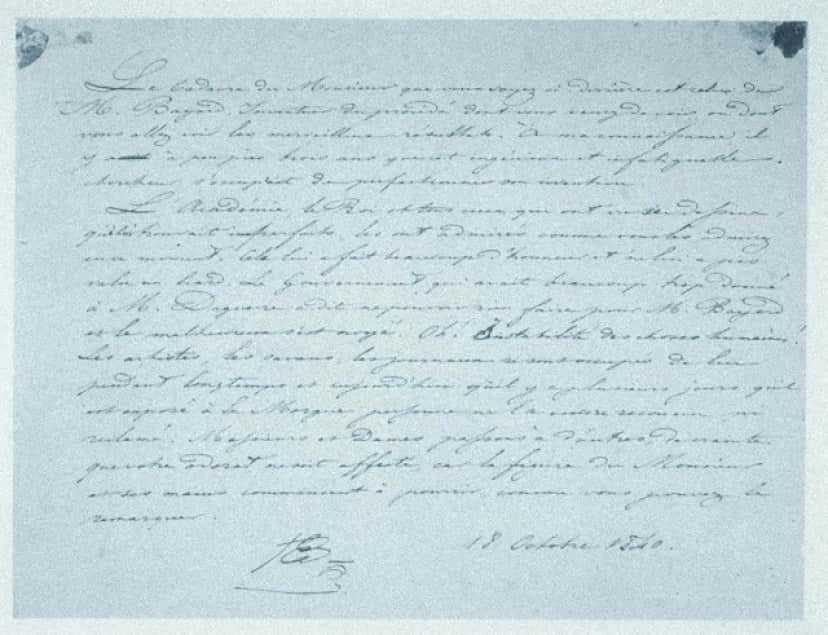 Le Cadavre du Monsieur que vous voyez ci derrière est celui de
M. Bayard, Inventeur du procédé dont vous venez de voir, ou dont
vous allez voir les merveilleux résultats. À ma connaissance il
y a à peu près trois ans que cet ingénieux et infatigable
chercheur s'occupait de perfectionner son invention.
L'Académie, le Roi et tous ceux qui ont vu ses dessins,
qu'il trouvait imparfaits, les ont admirés comme vous les admirez
en ce moment. Cela lui a fait beaucoup d'honneur et ne lui a pas
valu un liard. Le Gouvernement, qui avait beaucoup trop donné
à M. Daguerre a dit ne pouvoir rien faire pour M. Bayard
et le malheureux s'est noyé. Oh! Instabilité des choses humaines!
Les artistes, les savans, les journaux se sont occupés de lui
pendant longtemps et aujourd'hui qu'il y a plusieurs jours qu'il
est exposé à la Morgue personne ne l'a encore reconnu ni
réclamé. Messieurs et Dames, passons à d'autres, de crainte
que votre odorat ne soit affecté, car la figure du Monsieur
et ses mains commencent à pourrir, comme vous pouvez le
remarquer.
18 Octobre 1840.